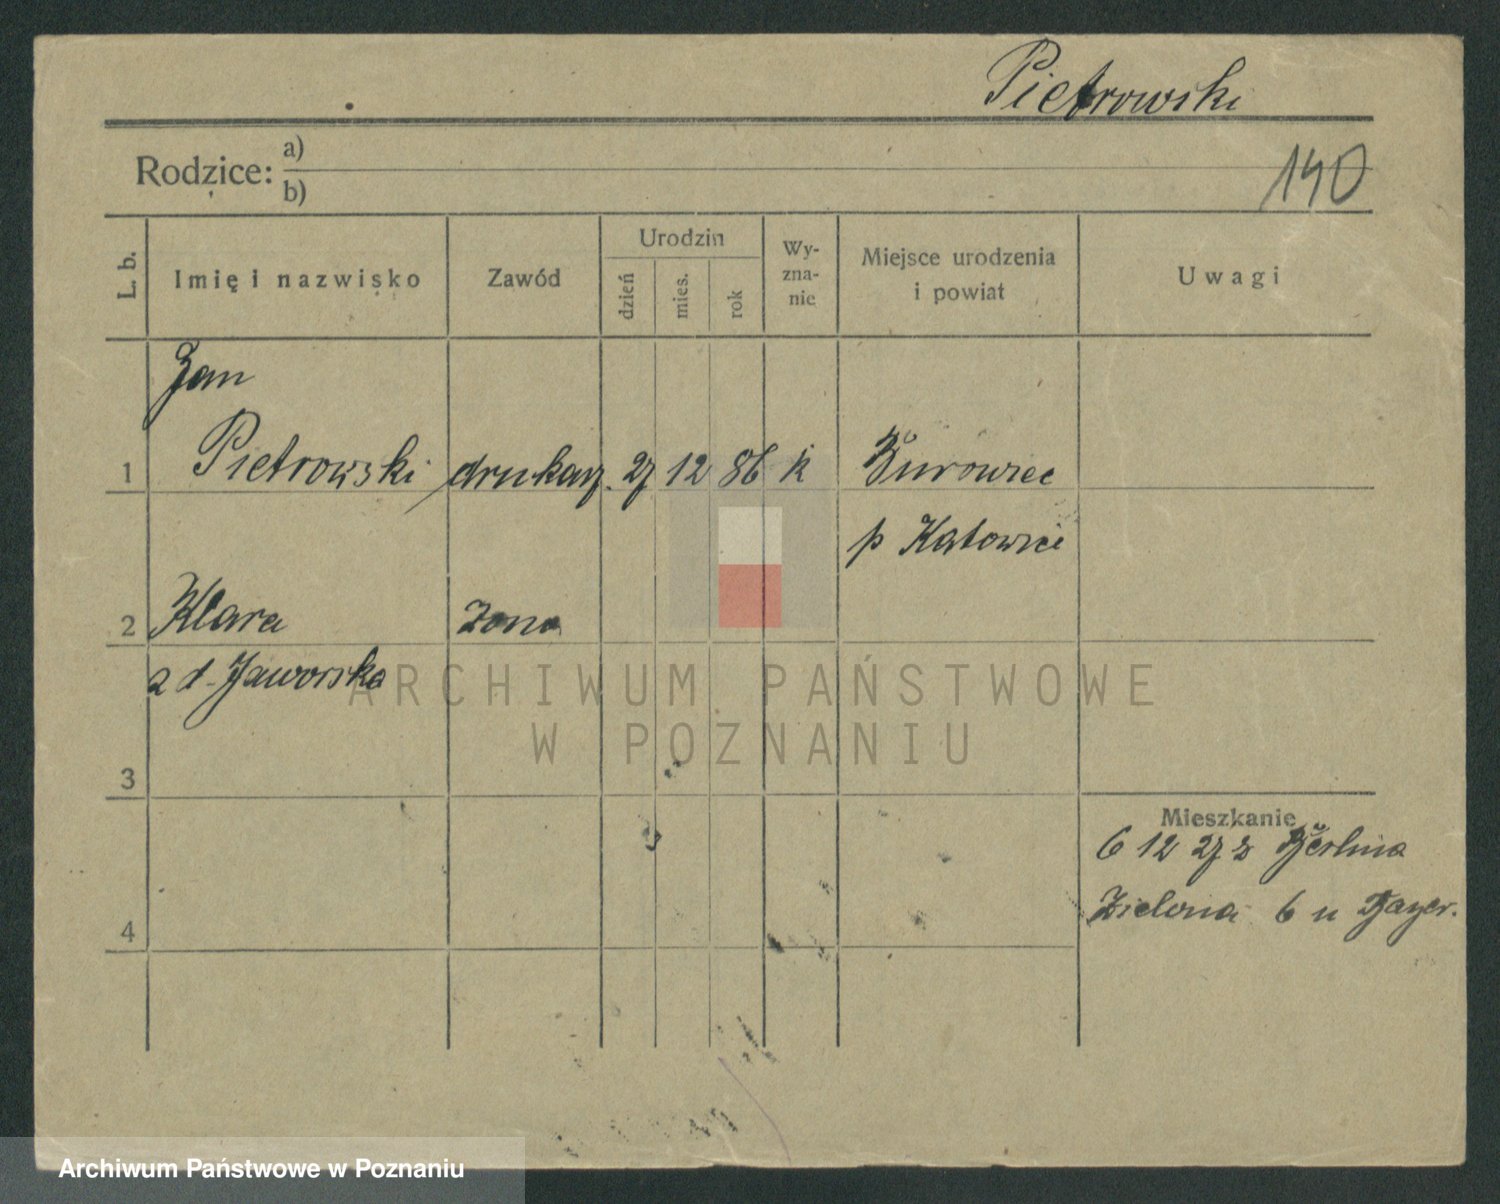 Pietrowski
Rodzice: a)
b)
140
L. b.
Imię i nazwisko
Zawód
Urodzin
dzień
mies.
rok
Wy-
zna-
nie
Miejsce urodzenia
i powiat
Uwagi
Jan
1 Pietrowski drukarz 27 12 86 k Burowiec
p Katowice
2 Klara żona
z d. Jaworska
ARCHIWUM PAŃSTWOWE
W POZNANIU
3
Mieszkanie
6 12 27 z Berlina
Zielona 6 u
4
Archiwum Państwowe w Poznaniu